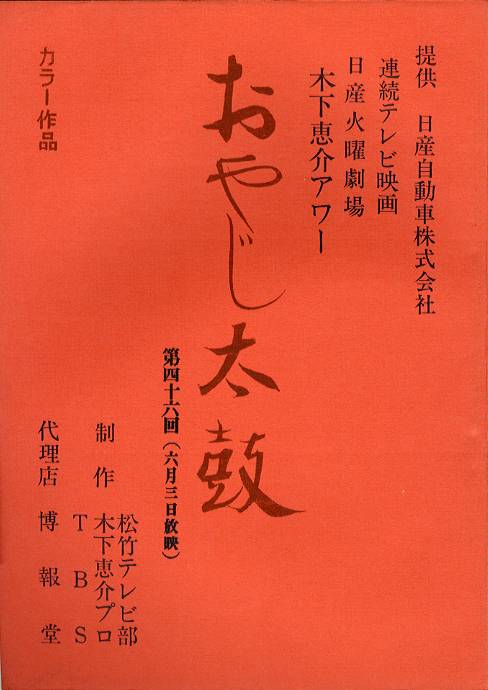 提供 日産自動車株式会社
連続テレビ映画
日産火曜劇場
木下恵介アワー
おやじ太鼓
第四十六回（六月三日放映）
カラー作品
制作 松竹テレビ部
木下恵介プロ
TBS
代理店 博報堂